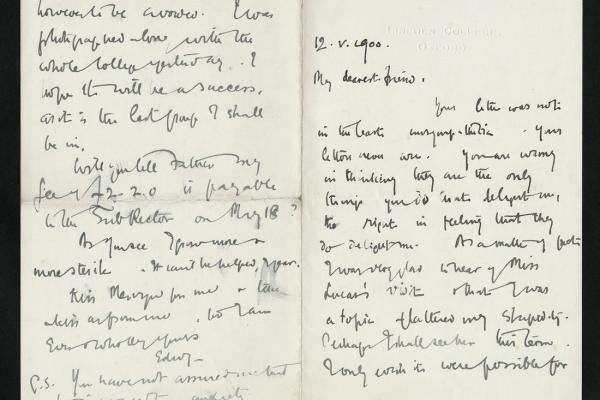 however to be avoided. I was
photographed alone with the
whole College yesterday. I
hope it will be a success,
as it is the last group I shall
be in.
Will you tell Father my
fee of £2-2-0 is payable
to the SubRector on May 18?
As you see I grow more &
more sterile. It can't be helped, I fear.
Kiss for me &
a kiss as from me, to
Ever & wholly yours
Edwy
P.S. You have not assured me that
LINCOLN COLLEGE,
OXFORD.
12. v. 1900.
My dearest friend,
Your letter was not
in the least unsympathetic. Your
letters never are. You are wrong
in thinking they are the only
things you do that delight me,
tho right in feeling that they
do delight me. As a matter of fact
I was very glad to hear of Miss
Lucas's visit & that I was
a topic & flattered my stupidity.
Perhaps I shall see her this term.
I only wish it were possible for